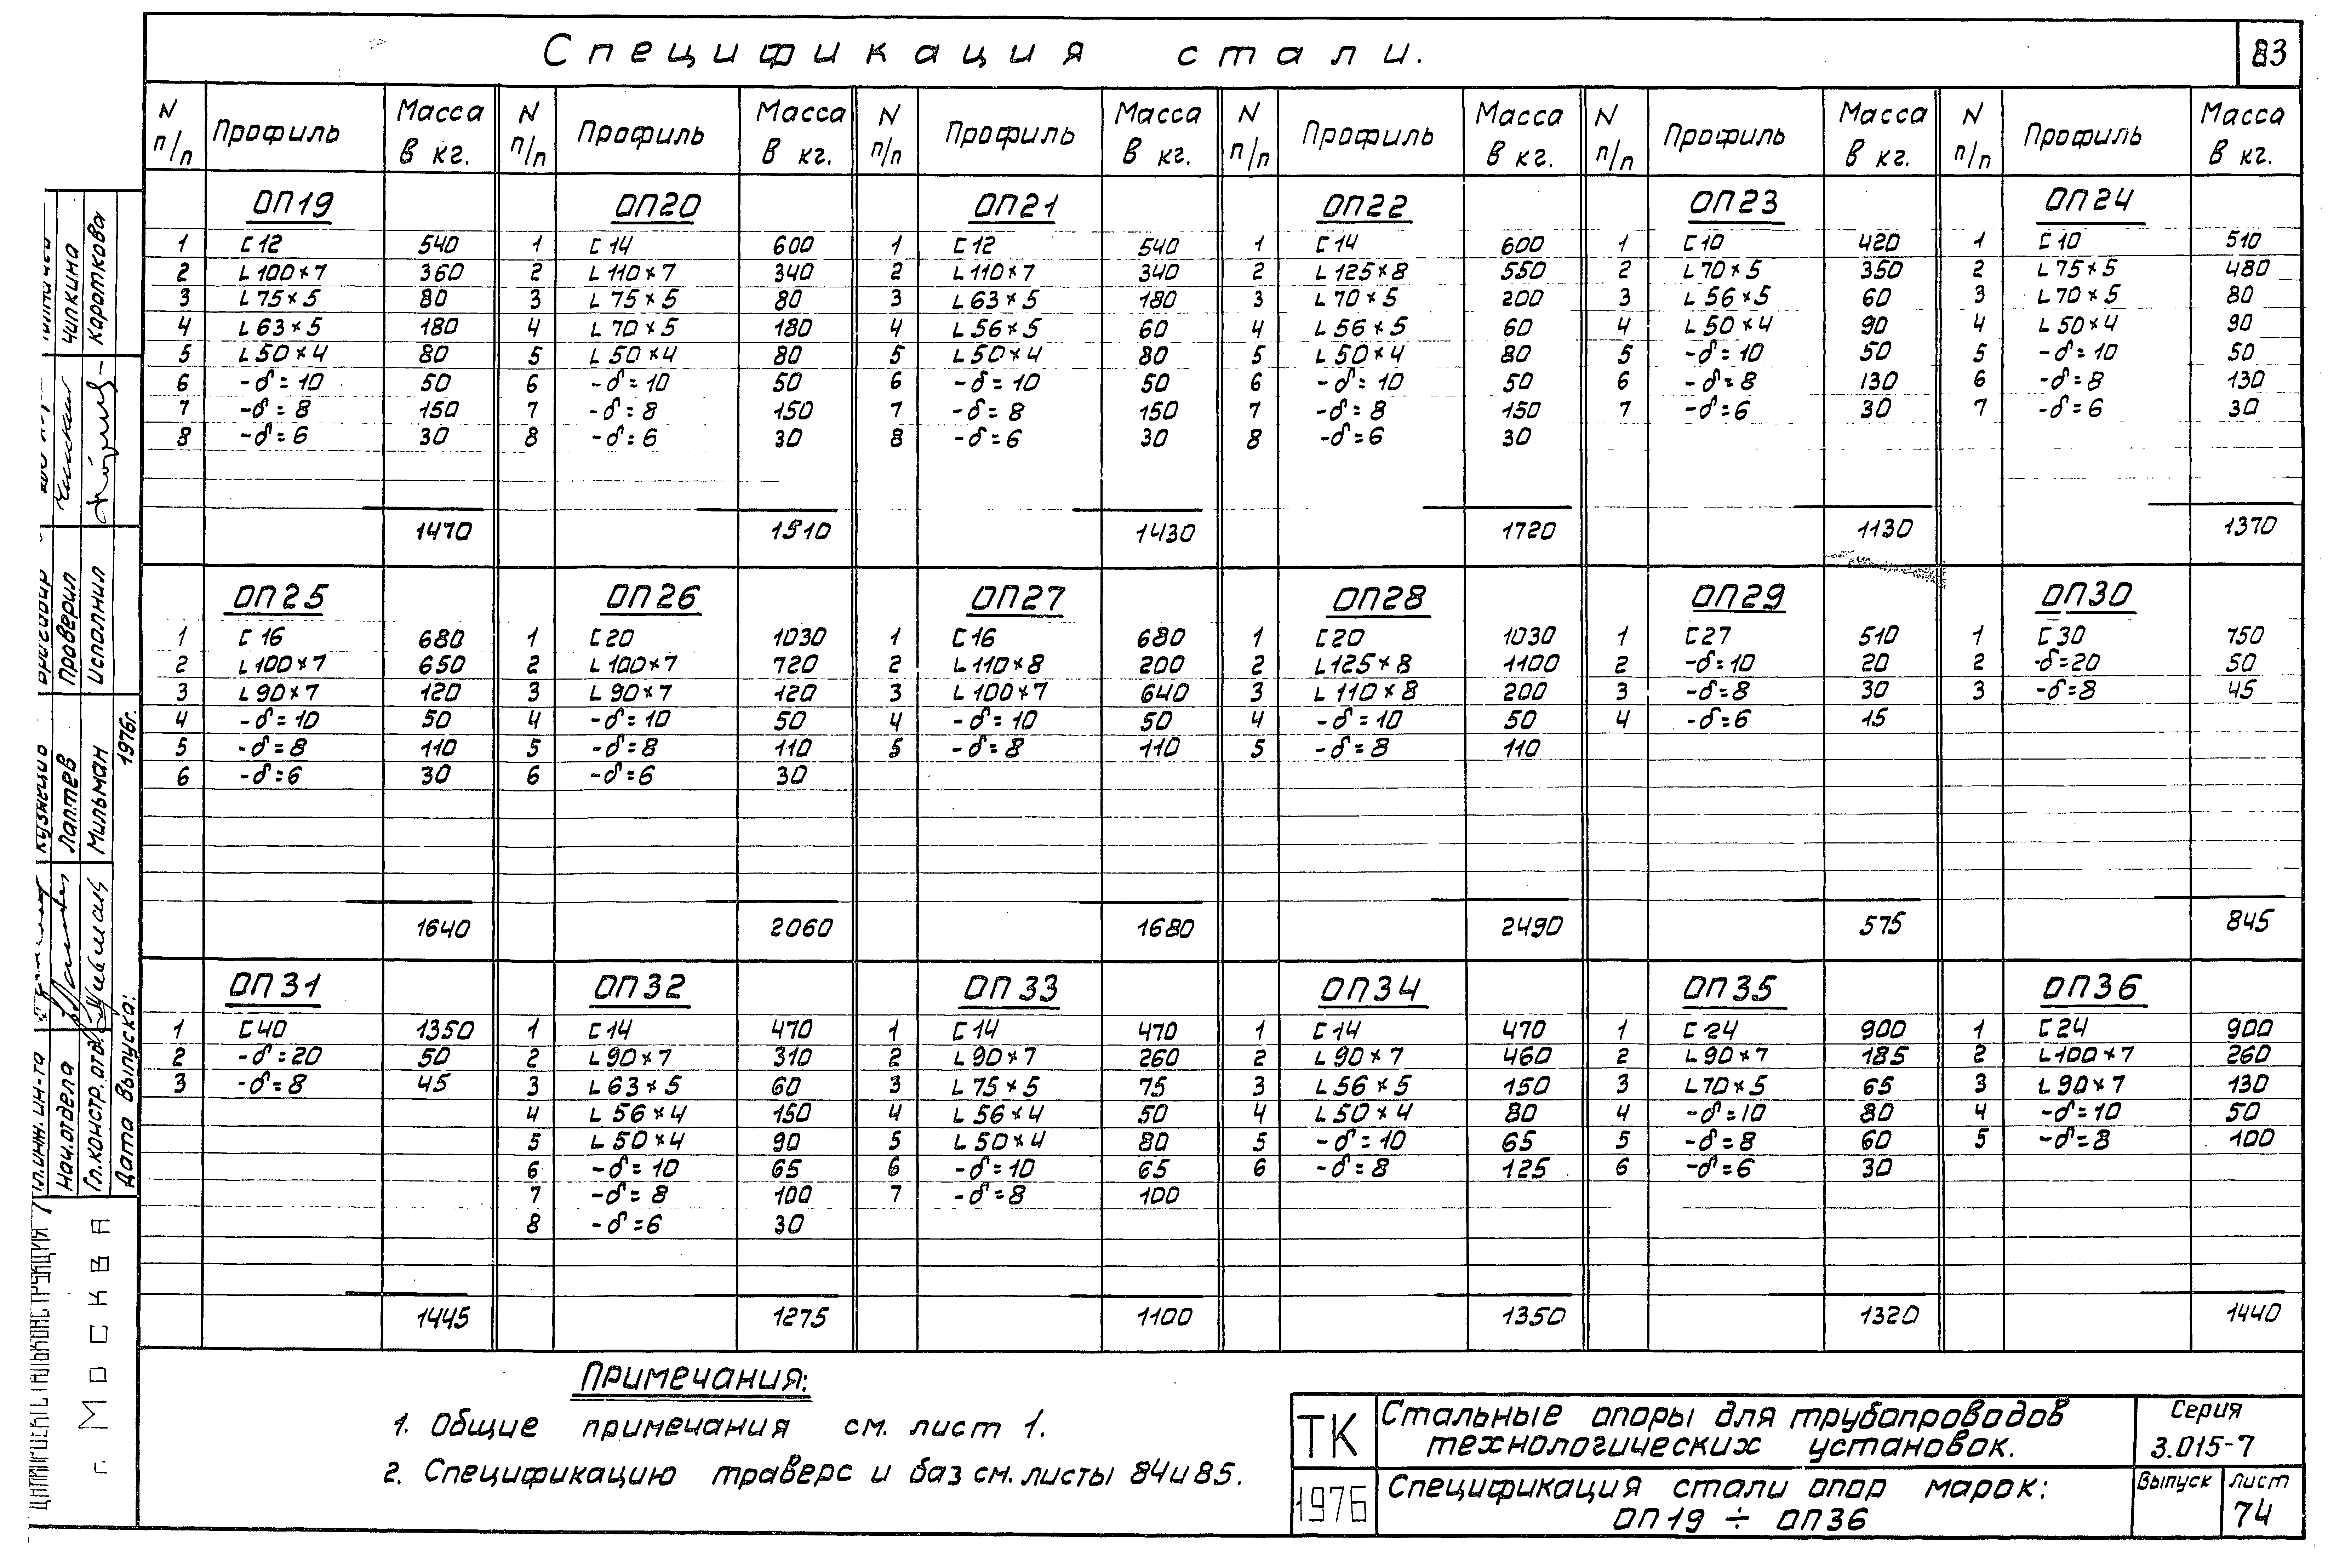 Спецификация стали.
83
N п/п Профиль Масса в кг. N п/п Профиль Масса в кг. N п/п Профиль Масса в кг. N п/п Профиль Масса в кг. N п/п Профиль Масса в кг. N п/п Профиль Масса в кг.
ОП19 ОП20 ОП21 ОП22 ОП23 ОП24
1 [12 540 1 [14 600 1 [12 540 1 [14 600 1 [10 420 1 [10 510
2 L100×7 360 2 L110×7 340 2 L110×7 340 2 L125×8 550 2 L70×5 350 2 L75×5 480
3 L75×5 80 3 L75×5 80 3 L63×5 180 3 L70×5 200 3 L56×5 60 3 L70×5 80
4 L63×5 180 4 L70×5 180 4 L56×5 60 4 L56×5 60 4 L50×4 90 4 L50×4 90
5 L50×4 80 5 L50×4 80 5 L50×4 80 5 L50×4 80 5 -δ=10 50 5 -δ=10 50
6 -δ=10 50 6 -δ=10 50 6 -δ=10 50 6 -δ=10 50 6 -δ=8 130 6 -δ=8 130
7 -δ=8 150 7 -δ=8 150 7 -δ=8 150 7 -δ=8 150 7 -δ=6 30 7 -δ=6 30
8 -δ=6 30 8 -δ=6 30 8 -δ=6 30 8 -δ=6 30
1470 1510 1430 1720 1130 1370
ОП25 ОП26 ОП27 ОП28 ОП29 ОП30
1 [16 680 1 [20 1030 1 [16 680 1 [20 1030 1 [27 510 1 [30 750
2 L100×7 650 2 L100×7 720 2 L110×8 200 2 L125×8 1100 2 -δ=10 20 2 -δ=20 50
3 L90×7 120 3 L90×7 120 3 L100×7 640 3 L110×8 200 3 -δ=8 30 3 -δ=8 45
4 -δ=10 50 4 -δ=10 50 4 -δ=10 50 4 -δ=10 50 4 -δ=6 15
5 -δ=8 110 5 -δ=8 110 5 -δ=8 110 5 -δ=8 110
6 -δ=6 30 6 -δ=6 30
1640 2060 1680 2490 575 845
ОП31 ОП32 ОП33 ОП34 ОП35 ОП36
1 [40 1350 1 [14 470 1 [14 470 1 [14 470 1 [24 900 1 [24 900
2 -δ=20 50 2 L90×7 310 2 L90×7 260 2 L90×7 460 2 L90×7 185 2 L100×7 260
3 -δ=8 45 3 L63×5 60 3 L75×5 75 3 L56×5 150 3 L70×5 65 3 L90×7 130
4 L56×4 150 4 L56×4 50 4 L50×4 80 4 -δ=10 80 4 -δ=10 50
5 L50×4 90 5 L50×4 80 5 -δ=10 65 5 -δ=8 60 5 -δ=8 100
6 -δ=10 65 6 -δ=10 65 6 -δ=8 125 6 -δ=6 30
7 -δ=8 100 7 -δ=8 100
8 -δ=6 30
1445 1275 1100 1350 1320 1440
Примечания:
1. Общие примечания см. лист 1.
2. Спецификацию траверс и баз см. листы 84 и 85.
ТК
1976
Стальные опоры для трубопроводов
технологических установок.
Серия
3.015-7
Спецификация стали опор марок:
ОП19 ÷ ОП36
Выпуск
лист
74
г. Москва
Гл.инж. ин-та
Нач.отдела Лаптев Проверил Чипкина
Гл.констр.отд. Мильман Исполнил Короткова
Дата выпуска: 1976г.